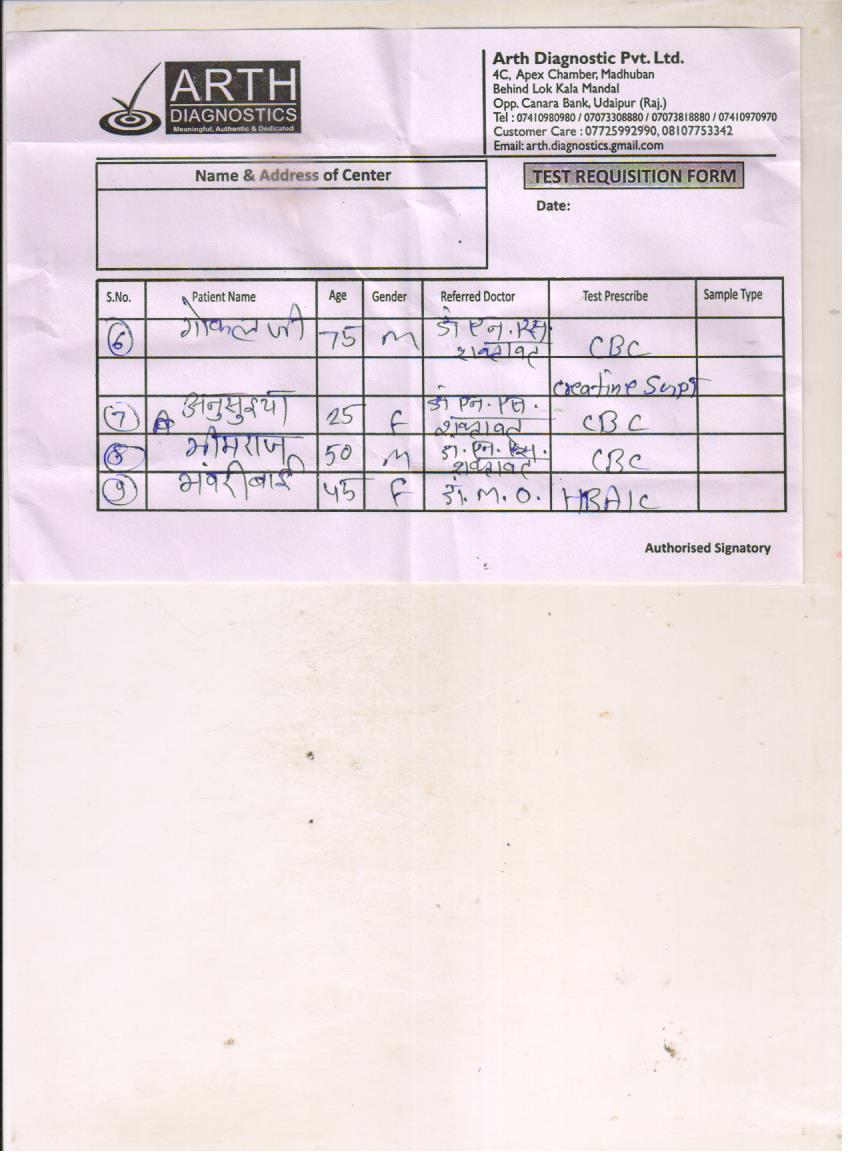 ARTH
DIAGNOSTICS
Meaningful, Authentic & Dedicated
Arth Diagnostic Pvt. Ltd.
4C, Apex Chamber, Madhuban
Behind Lok Kala Mandal
Opp. Canara Bank, Udaipur (Raj.)
Tel : 07410980980 / 07073308880 / 07073818880 / 07410970970
Customer Care : 07725992990, 08107753342
Email: arth.diagnostics.gmail.com
Name & Address of Center
TEST REQUISITION FORM
Date:
S.No. Patient Name Age Gender Referred Doctor Test Prescribe Sample Type
6 गोकल जी 75 M डॉ एन. एस. शक्तावत CBC
Creatine
7 अनुसुइया 25 F डॉ एन. एस. शक्तावत CBC
8 भीमराज 50 M डॉ. एन. एस. शक्तावत CBC
9 भंवरी बाई 45 F डॉ. M. O. HBA1C
Authorised Signatory